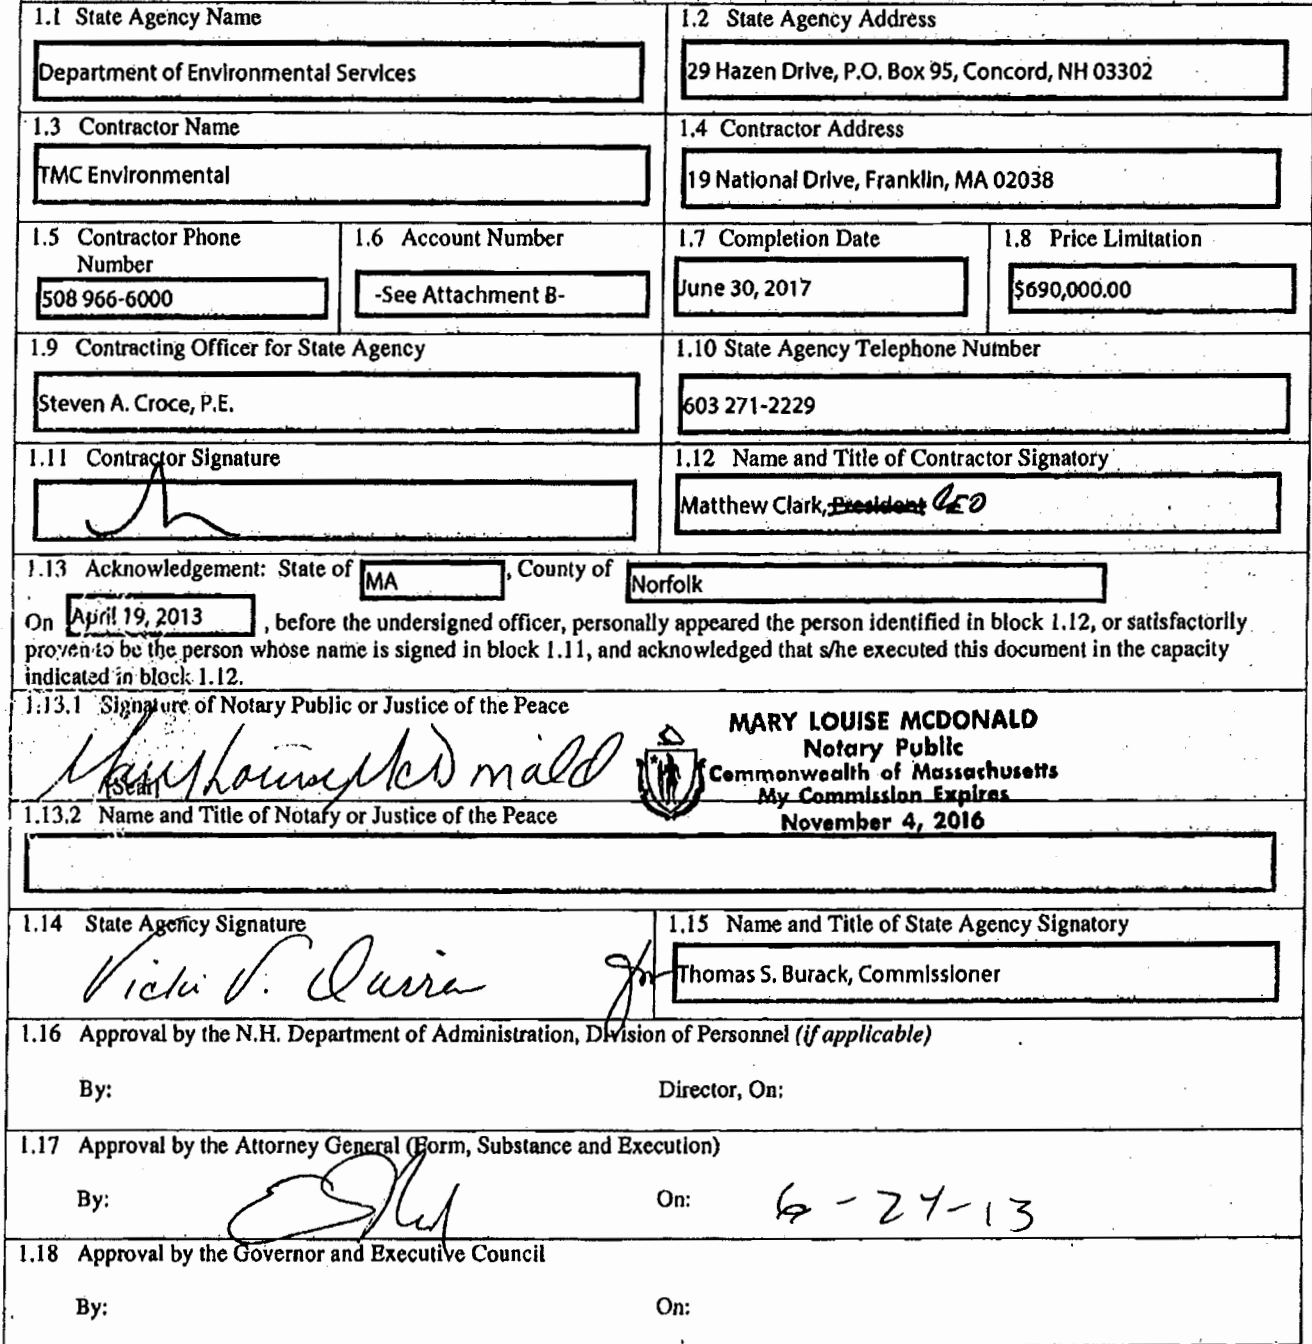 1.1 State Agency Name
Department of Environmental Services
1.2 State Agency Address
29 Hazen Drive, P.O. Box 95, Concord, NH 03302
1.3 Contractor Name
TMC Environmental
1.4 Contractor Address
19 National Drive, Franklin, MA 02038
1.5 Contractor Phone
Number
508 966-6000
1.6 Account Number
-See Attachment B-
1.7 Completion Date
June 30, 2017
1.8 Price Limitation
$690,000.00
1.9 Contracting Officer for State Agency
Steven A. Croce, P.E.
1.10 State Agency Telephone Number
603 271-2229
1.11 Contractor Signature
1.12 Name and Title of Contractor Signatory
Matthew Clark, President CEO
1.13 Acknowledgement: State of MA, County of Norfolk
On April 19, 2013, before the undersigned officer, personally appeared the person identified in block 1.12, or satisfactorily
proven to be the person whose name is signed in block 1.11, and acknowledged that s/he executed this document in the capacity
indicated in block 1.12.
1.13.1 Signature of Notary Public or Justice of the Peace
Mary Louise McDonald
[Seal]
MARY LOUISE MCDONALD
Notary Public
Commonwealth of Massachusetts
My Commission Expires
November 4, 2016
1.13.2 Name and Title of Notary or Justice of the Peace
1.14 State Agency Signature
Vicki V. Quiram for
1.15 Name and Title of State Agency Signatory
Thomas S. Burack, Commissioner
1.16 Approval by the N.H. Department of Administration, Division of Personnel (if applicable)
By:
Director, On:
1.17 Approval by the Attorney General (Form, Substance and Execution)
By:
On: 6-24-13
1.18 Approval by the Governor and Executive Council
By:
On: